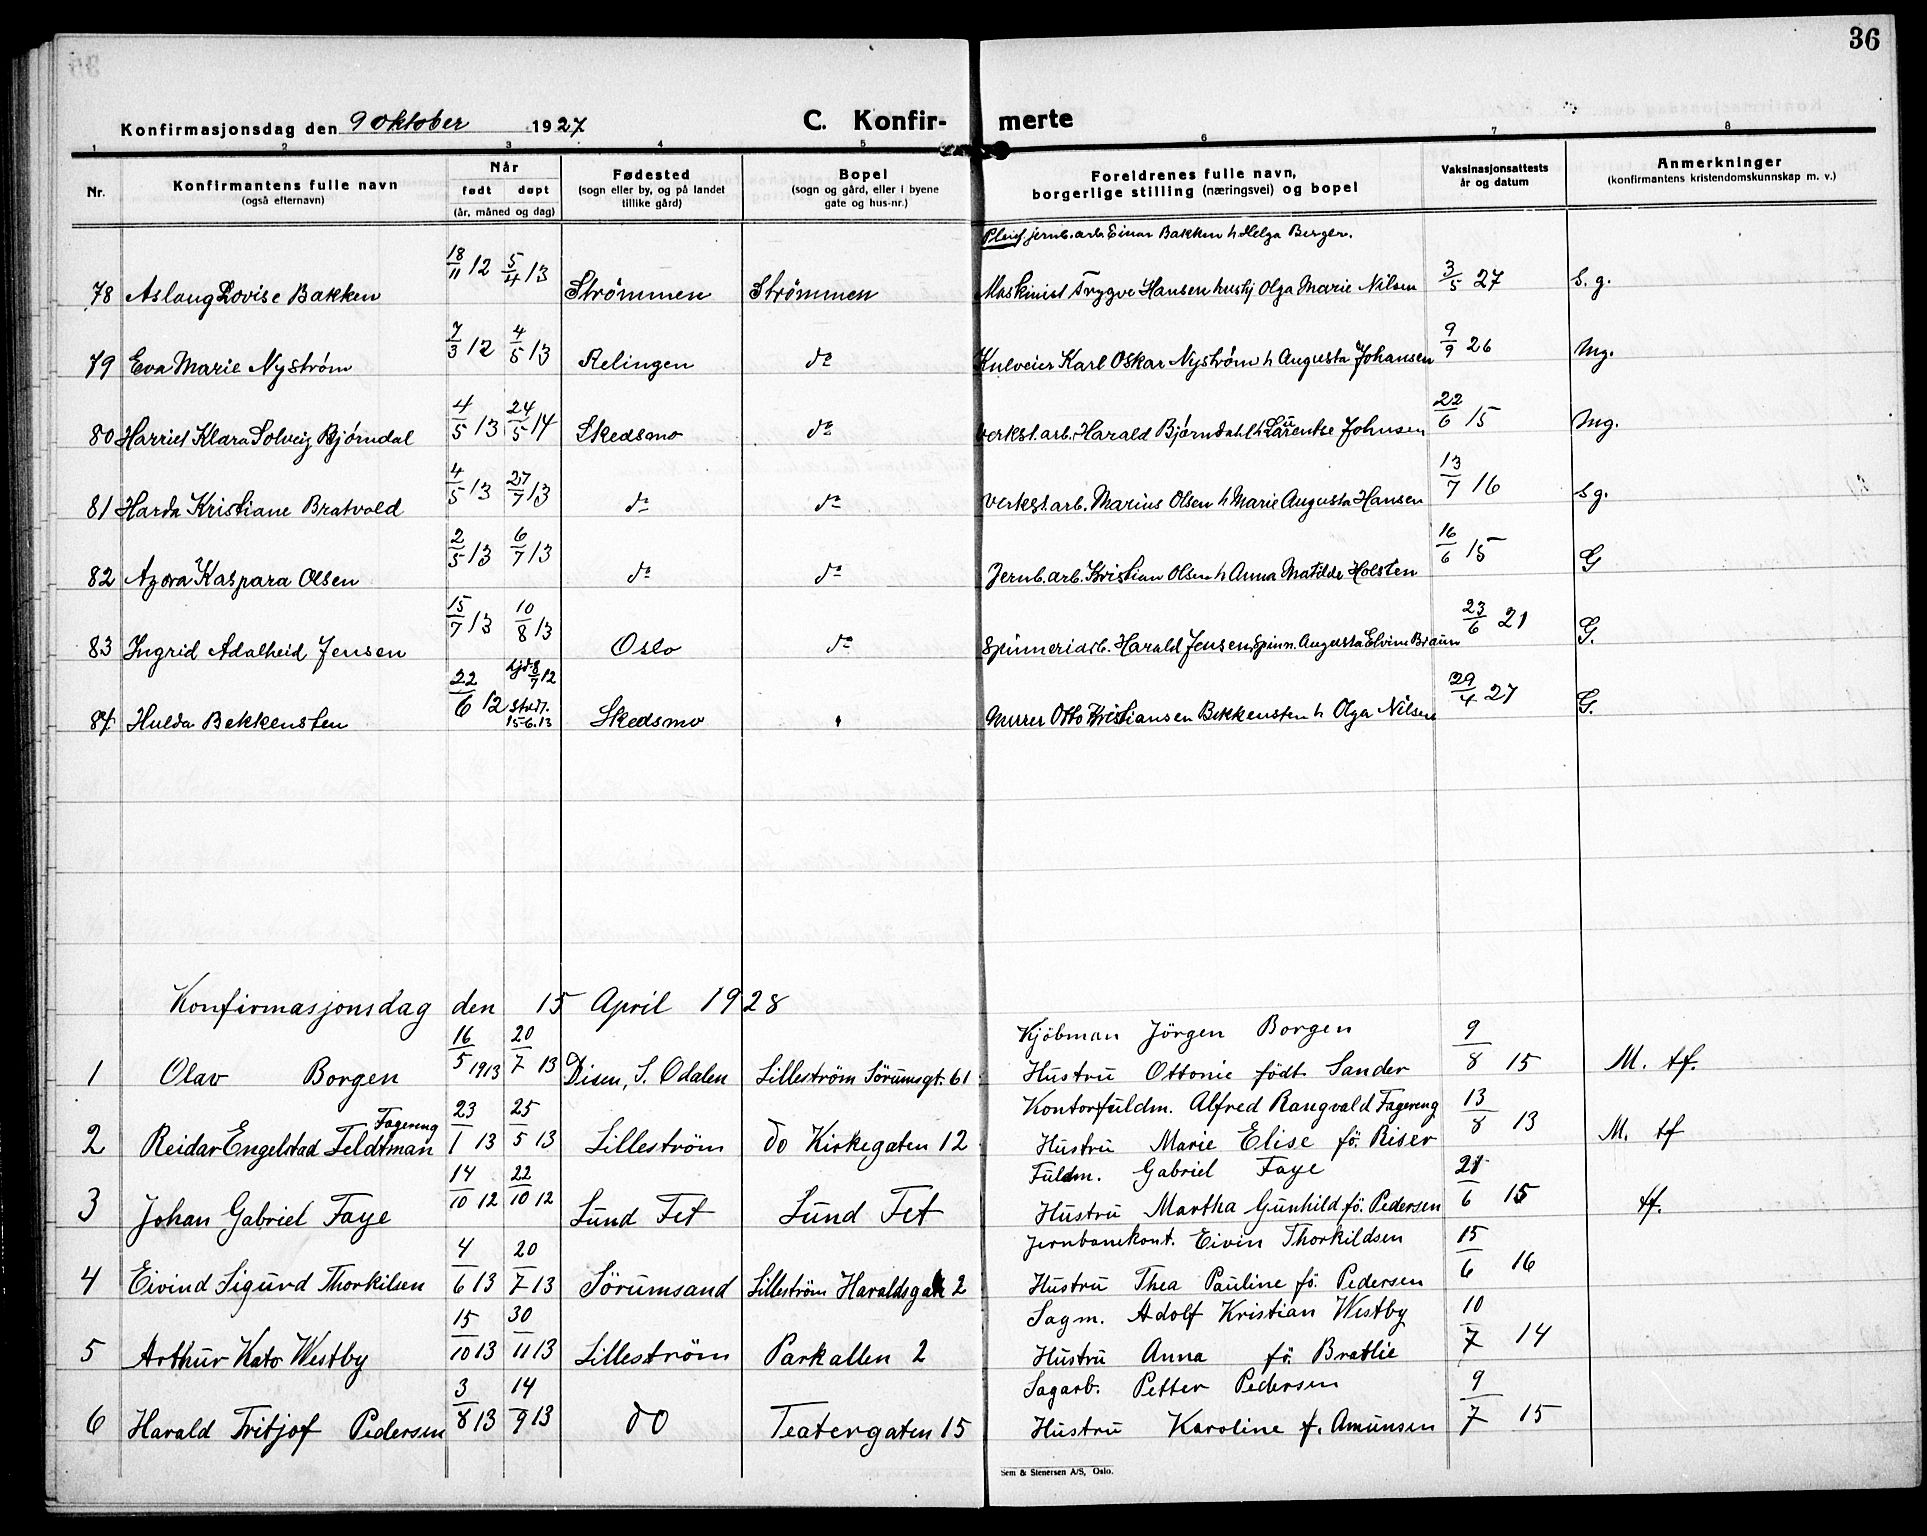 36
Konfirmasjonsdag den 9 Oktober 1927 C. Konfir- merte
1 2 3 4 5 6 7 8
Nr. Konfirmantens fulle navn (også efternavn) Når født døpt (år, måned og dag) Fødested (sogn eller by, og på landet tillike gård) Bopel (sogn og gård, eller i byene gate og hus-nr.) Foreldrenes fulle navn, borgerlige stilling (næringsvei) og bopel Vaksinasjonsattests år og datum Anmerkninger (konfirmantens kristendomskunnskap m. v.)
Pleief jernb.arb. Einar Bakken h Helga Berger.
78 Aslaug Lovise Bakken 18/11 12 5/4 13 Strømmen Strømmen Maskinist Trygve Hansen hustj Olga Marie Nilsen 3/5 27 S. g.
79 Eva Marie Nyström 7/3 12 4/5 13 Relingen do Kulveier Karl Oskar Nyström h Augusta Johansen 9/9 26 Mg.
80 Harriet Klara Solveig Bjørndal 4/5 13 24/5 14 Skedsmo do Verkst.arb. Harald Bjørndahl h Laurentse Johnsen 22/6 15 Mg.
81 Harda Kristiane Bratvold 4/5 13 27/7 13 do do Verkst.arb. Marius Olsen h Marie Augusta Hansen 13/7 16 S g.
82 Agora Kaspara Olsen 2/5 13 6/7 13 do do Jernb.arb. Kristian Olsen h Anna Matilde Holsten 16/6 15 G
83 Ingrid Adalheid Jensen 15/7 13 10/8 13 Oslo do Spinneriarb. Harald Jensen Spinn. Augusta Elvine Braun 23/6 21 G.
84 Hulda Bekkensten 22/6 12 hjd 8/7 12 stadf. 15-6.13 Skedsmo " Murer Otto Kristiansen Bekkensten h Olga Nilsen 29/4 27 G.
Konfirmasjonsdag den 15 April 1928
Kjöbman Jörgen Borgen
1 Olav Borgen 16/5 1913 20/7 13 Disen, S. Odalen Lilleström Sörumsgt. 61 Hustru Ottonie födt Sander 9/8 15 M. tf.
Fagereng Kontorfuldm. Alfred Rangvald Fagereng
2 Reidar Engelstad Feldtman 23/1 13 25/5 13 Lilleström do Kirkegaten 12 Hustru Marie Elise fö. Riser 13/8 13 M. tf
Fuldm. Gabriel Faye
3 Johan Gabriel Faye 14/10 12 22/10 12 Lund Fet Lund Fet Hustru Martha Gunhild fö. Pedersen 21/6 15 tf.
Jernbanekont. Eivin Thorkildsen
4 Eivind Sigurd Thorkilsen 4/6 13 20/7 13 Sörumsand Lilleström Haraldsgate 2 Hustru Thea Pauline fö. Pedersen 15/6 16
Sagm. Adolf Kristian Westby
5 Arthur Kato Westby 15/10 13 30/11 13 Lilleström Parkallen 2 Hustru Anna fö. Bratlie 10/7 14
Sagarb. Petter Pedersen
6 Harald Fritjof Pedersen 3/8 13 14/9 13 do Teatergaten 15 Hustru Karoline f. Amunsen 9/7 15
Sem & Stenersen A/S, Oslo.